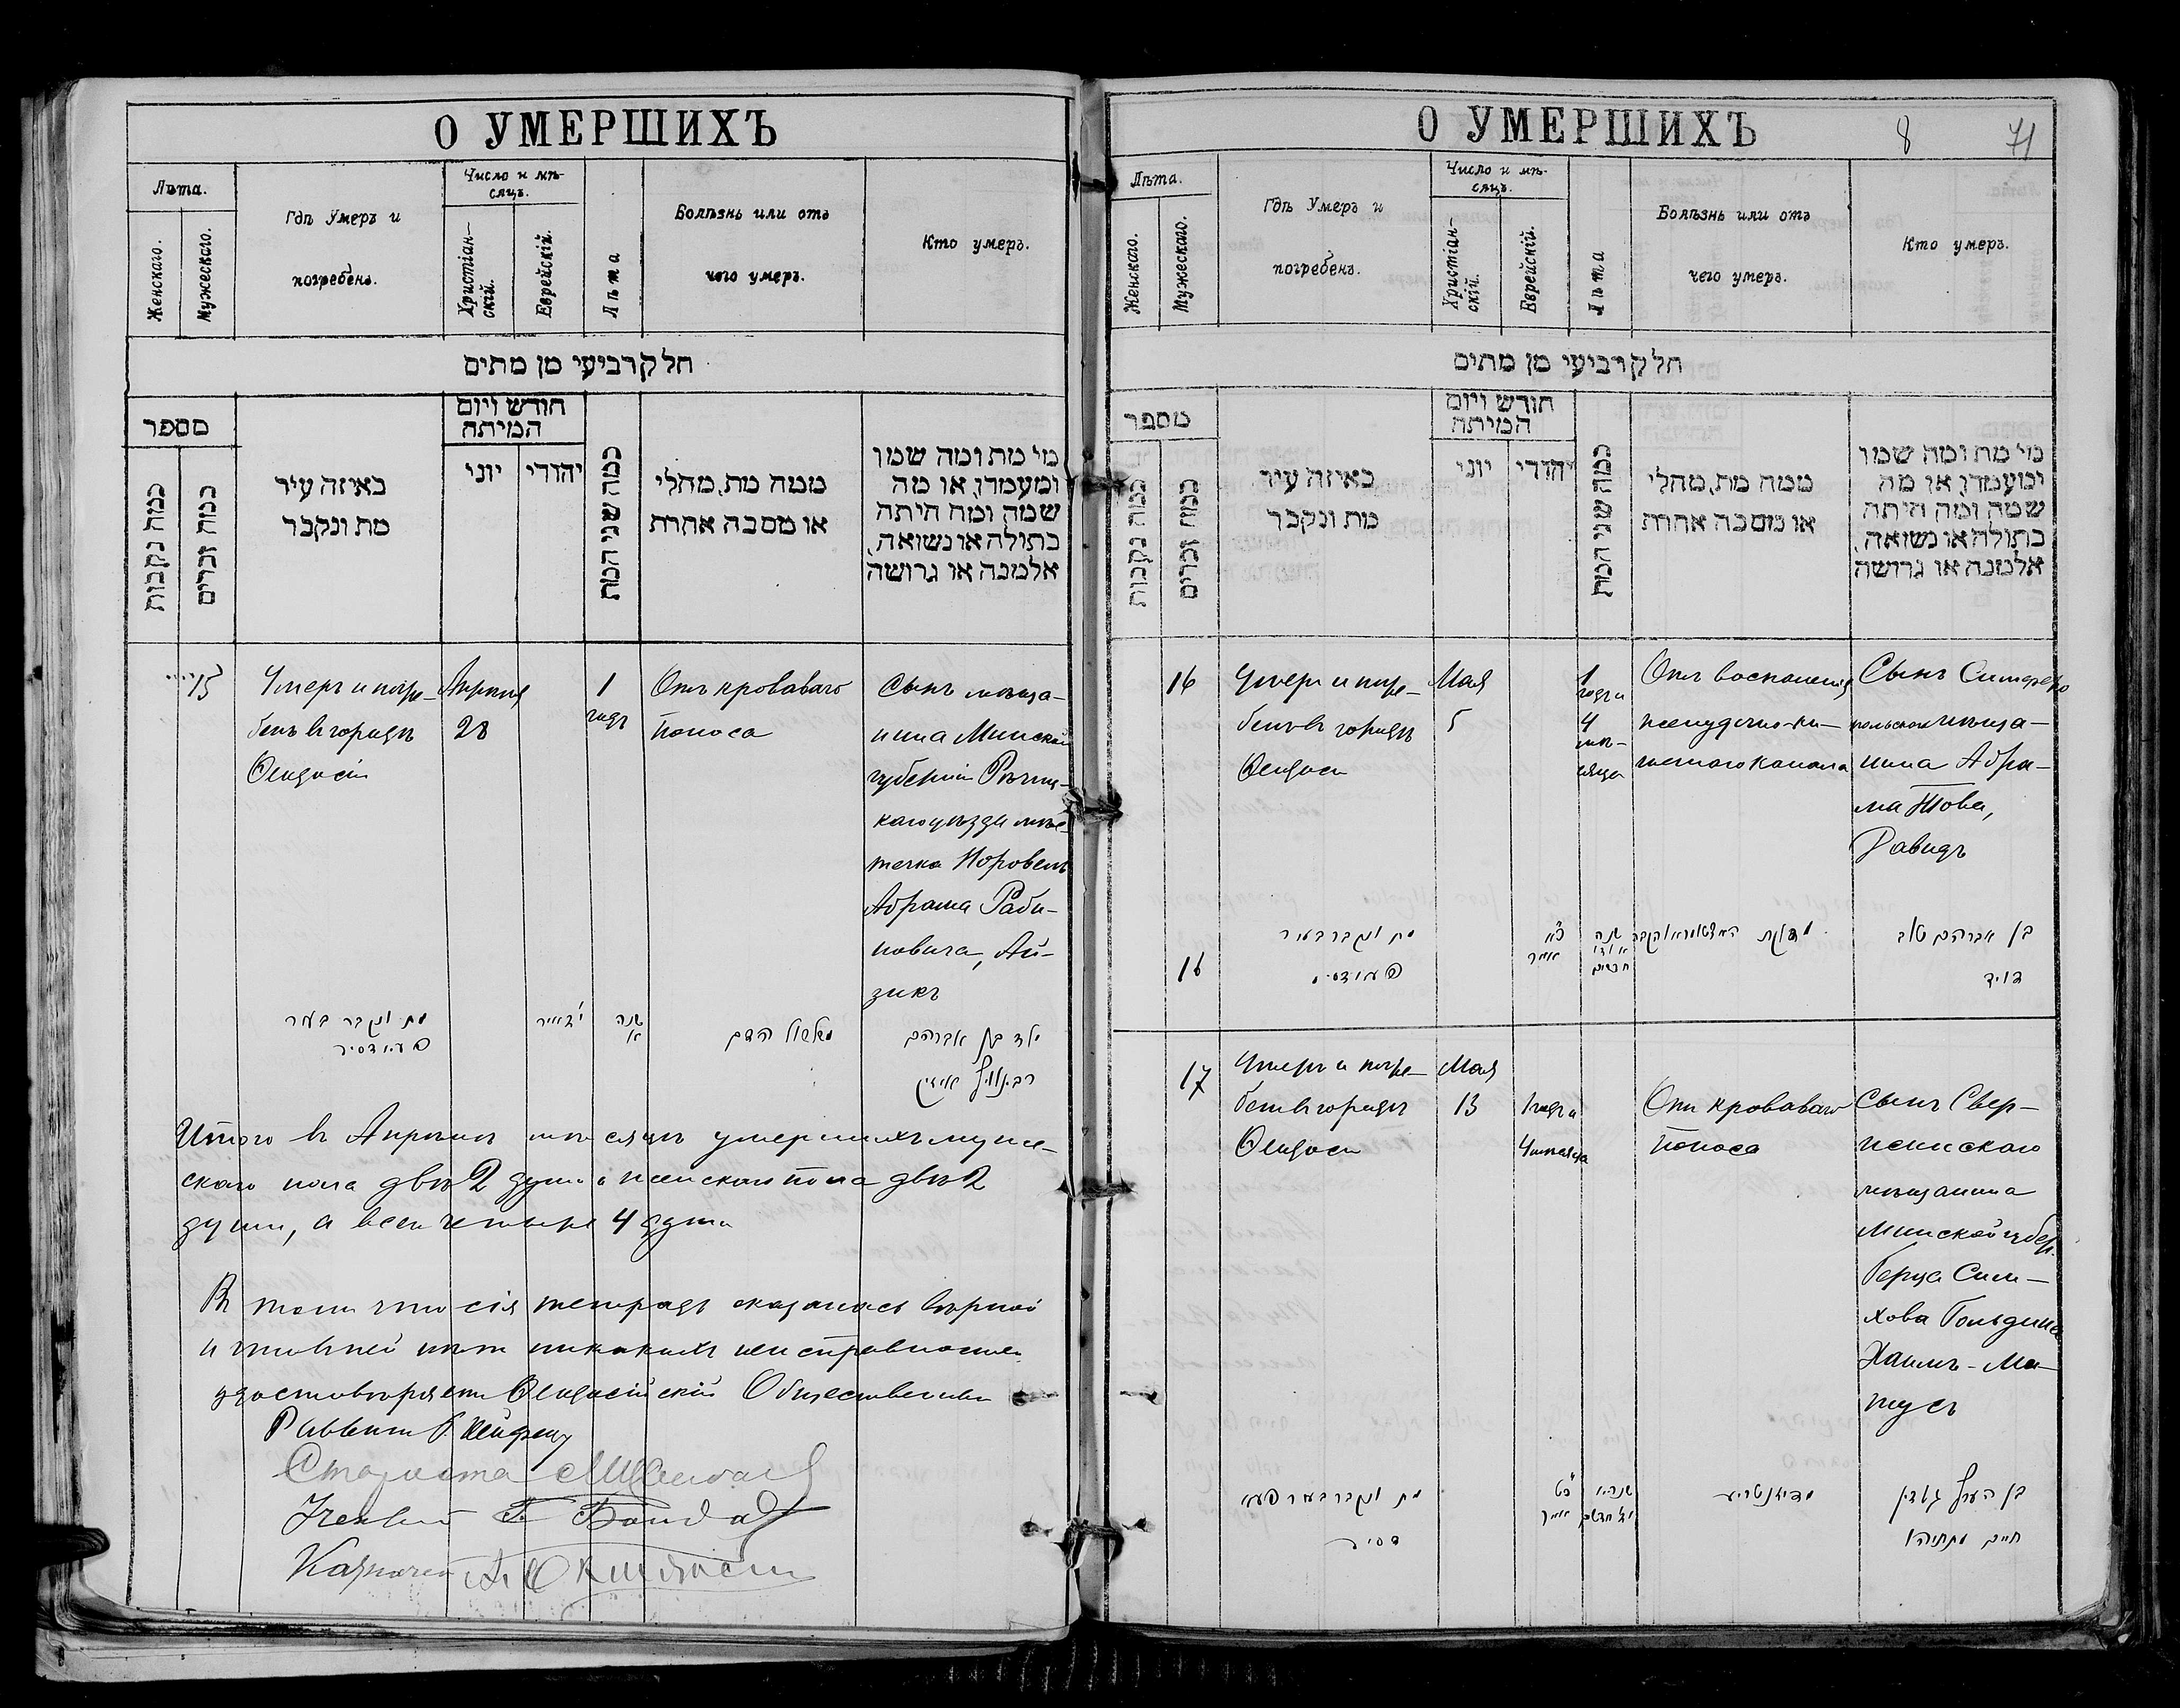 О УМЕРШИХЪ
Лѣта.
Женскаго.
Мужескаго.
Гдѣ Умеръ и
погребенъ.
Число и мѣ-
сяцъ.
Христіан-
скій.
Еврейскій.
Лѣта
Болѣзнь или отъ
чего умеръ.
Кто умеръ.
חלק רביעי מן מתים
מספר
כמה נקבות
כמה זכרים
באיזה עיר
מת ונקבר
חודש ויום
המיתה
יוני
יהודי
כמה שני המת
ממה מת, מחלי
או מסבה אחרת
מי מת ומה שמו
ומעמדו, או מה
שמה ומה היתה
בתולה או נשואה,
אלמנה או גרושה
15
Умеръ и погре-
бенъ въ городѣ
Ѳеодосіи
Апрѣля
28
1
годъ
Отъ кроваваго
поноса
Сынъ мѣща-
нина Минской
губерніи Рѣчиц-
каго уѣзда мѣс-
течка Норовель
Абрама Раби-
новича, Ай-
зикъ
מת ונקבר בעיר
שנה
א
משלשול הדם
ילד בן אברהם
Итого въ Апрѣлѣ мѣсяцѣ умершихъ муже-
скаго пола двѣ 2 души женскаго пола двѣ 2
души, а всего четыре 4 души
Въ томъ что сія тетрадь оказалась вѣрной
и что въ ней нѣтъ никакихъ неисправностей
удостовѣряетъ Ѳеодосійскій Общественный
Раввинъ
Староста
Ученый
Казначей
О УМЕРШИХЪ
8
71
Лѣта.
Женскаго.
Мужескаго.
Гдѣ Умеръ и
погребенъ.
Число и мѣ-
сяцъ.
Христіан-
скій.
Еврейскій.
Лѣта
Болѣзнь или отъ
чего умеръ.
Кто умеръ.
חלק רביעי מן מתים
מספר
כמה נקבות
כמה זכרים
באיזה עיר
מת ונקבר
חודש ויום
המיתה
יוני
יהודי
כמה שני המת
ממה מת, מחלי
או מסבה אחרת
מי מת ומה שמו
ומעמדו, או מה
שמה ומה היתה
בתולה או נשואה,
אלמנה או גרושה
16
Умеръ и погре-
бенъ въ городѣ
Ѳеодоси
Мая
5
1
годъ и
4
мѣ-
сяца
Отъ воспаленія
желудочно-ки-
шечнаго канала
Сынъ Симферо
польскаго мѣща-
нина Абра-
ма Това,
Давидъ
16
מת ונקבר בעיר
שנה
חדשים
אייר
בן אברהם טוב
דויד
17
Умеръ и погре-
бенъ въ городѣ
Ѳеодоси
Мая
13
1 годъ и
4 мѣсяца
Отъ кроваваго
поноса
Сынъ Свер-
женскаго
мѣщанина
Минской губер.
Герца Сим-
хова Гольдина
Хаимъ-Ма-
тусъ
כט
אייר
מדיזנטריע
בן הערץ גולדין
חיים מתתיהו